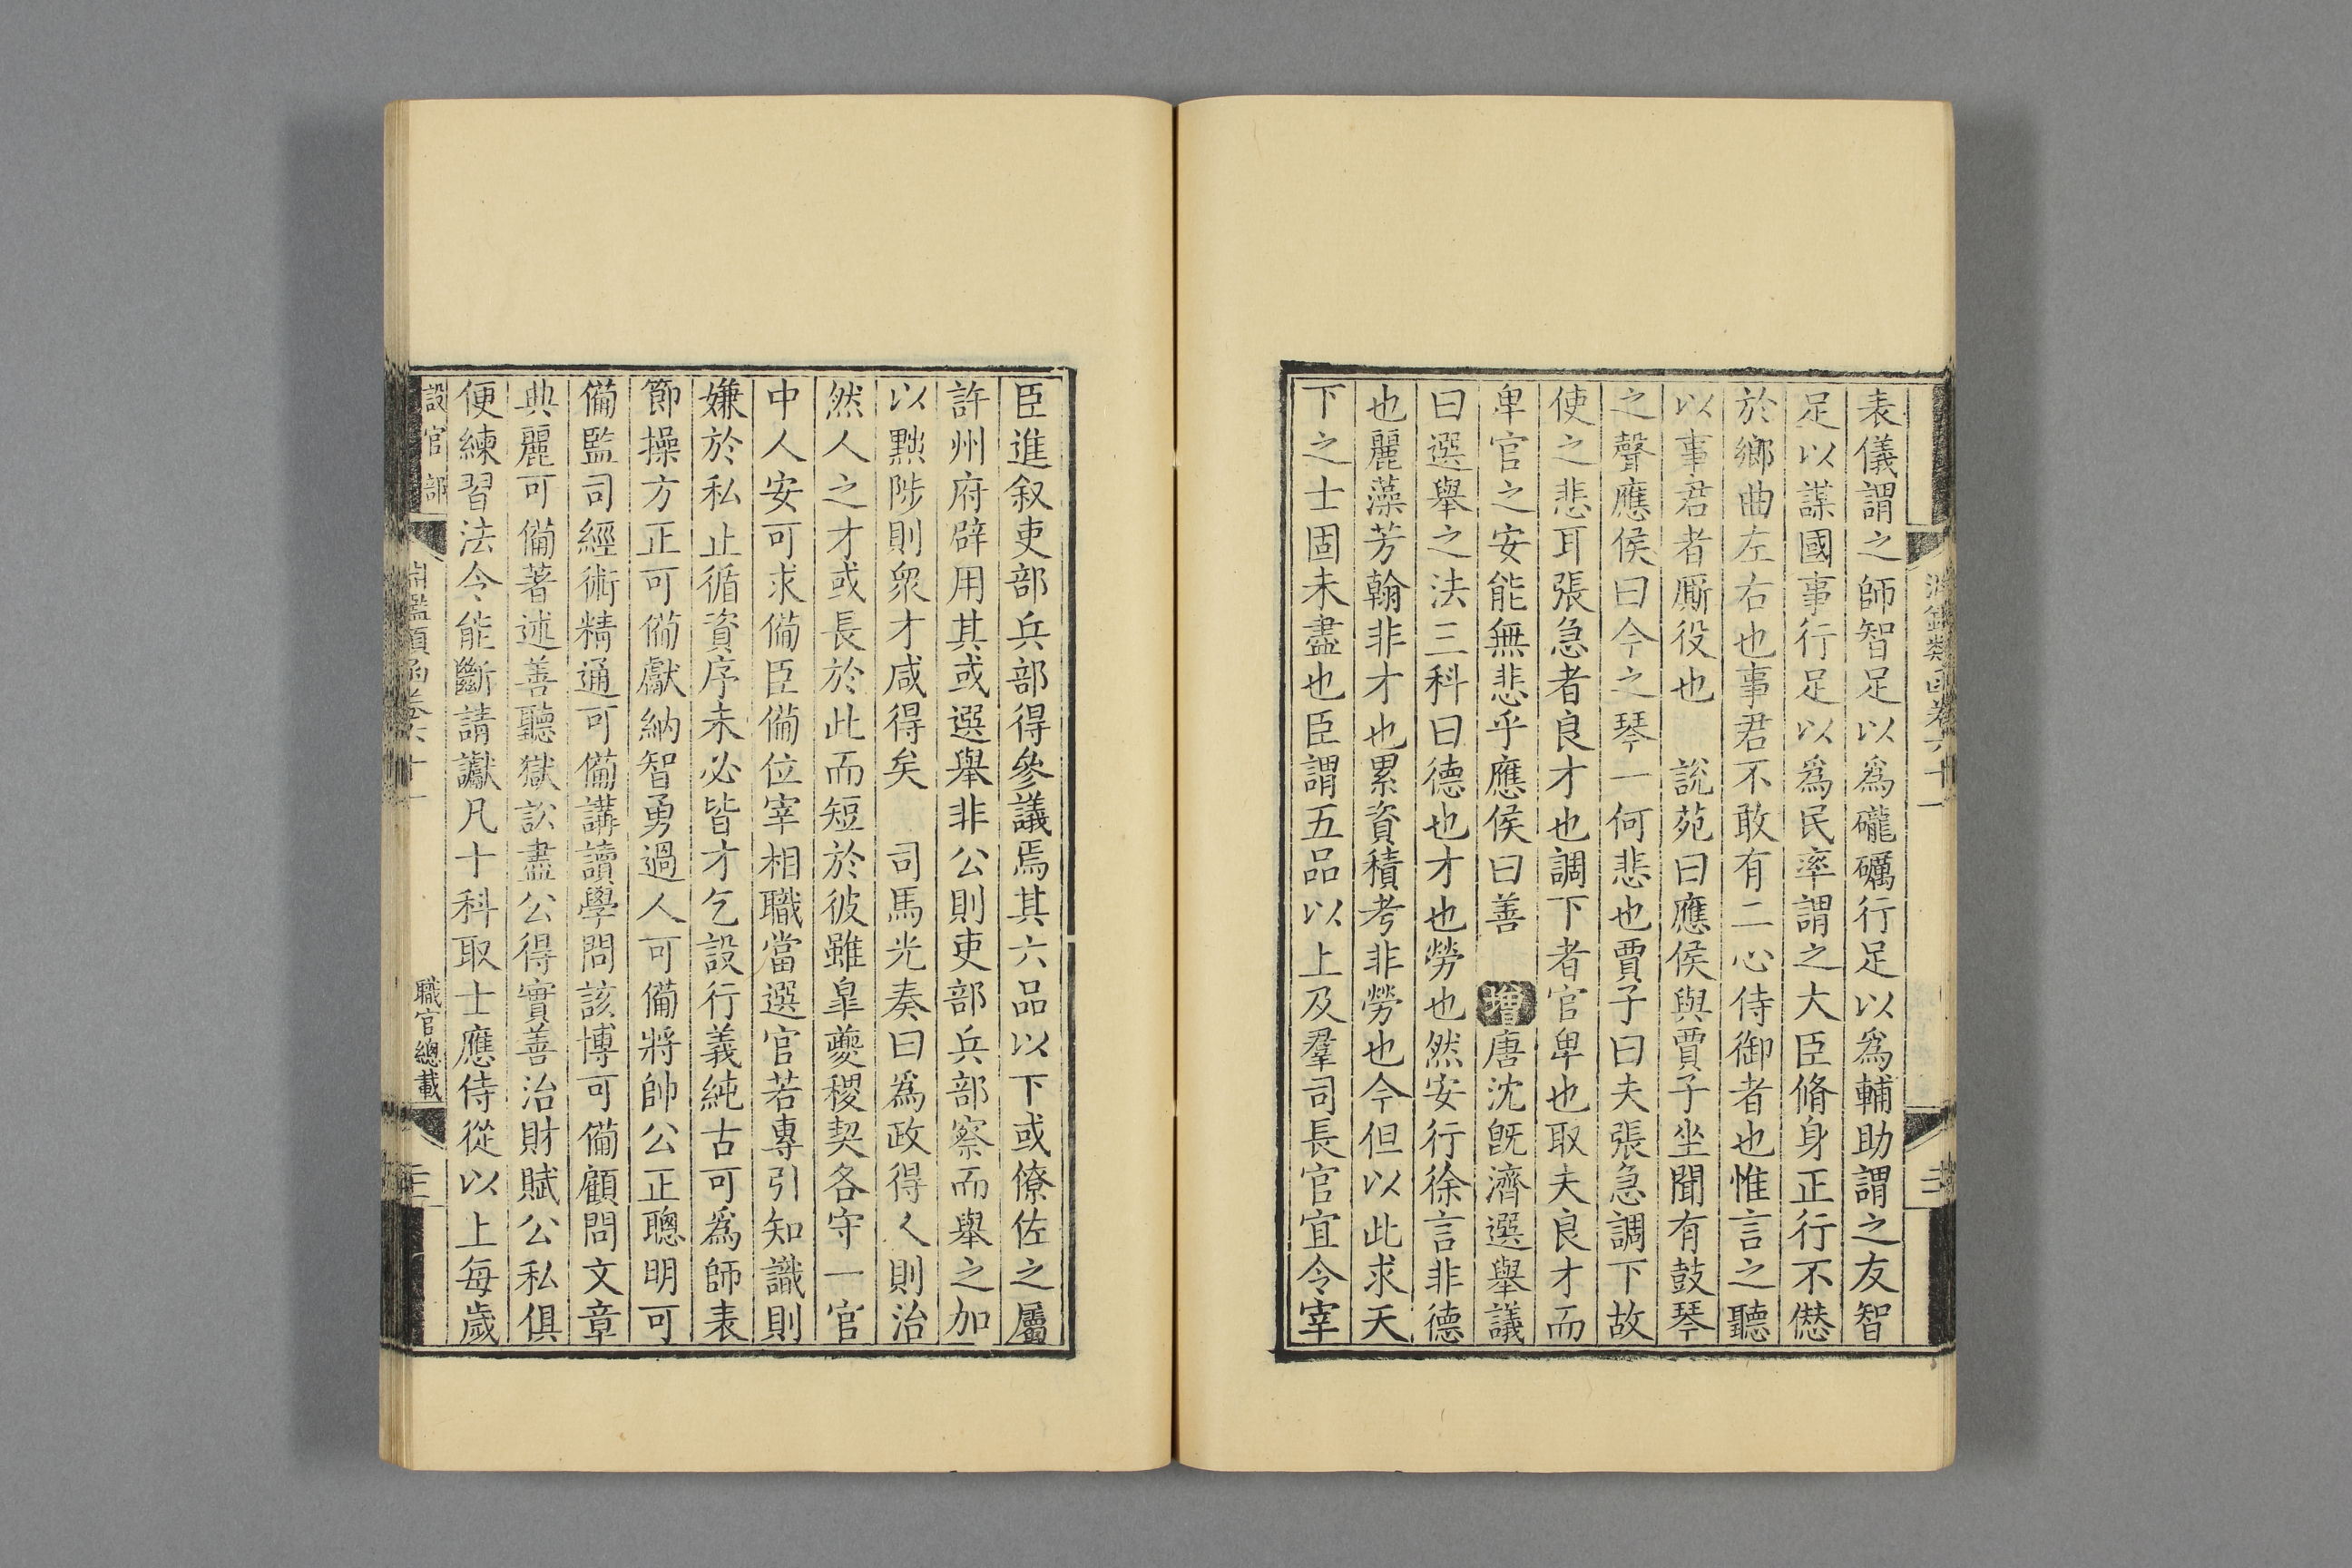 表儀謂之師智足以爲礲礪行足以爲輔助謂之友智
足以謀國事行足以爲民率謂之大臣脩身正行不僁
於鄉曲左右也事君不敢有二心侍御者也惟言之聽
以事君者厮役也 說苑曰應侯與賈子坐聞有鼓琴
之聲應侯曰今之琴一何悲也賈子曰夫張急調下故
使之悲耳張急者良才也調下者官卑也取夫良才而
卑官之安能無悲乎應侯曰善 增唐沈旣濟選舉議
曰選舉之法三科曰德也才也勞也然安行徐言非德
也麗藻芳翰非才也累資積考非勞也今但以此求天
下之士固未盡也臣謂五品以上及羣司長官宜令宰
臣進叙吏部兵部得參議焉其六品以下或僚佐之屬
許州府辟用其或選舉非公則吏部兵部察而舉之加
以黜陟則衆才咸得矣 司馬光奏曰爲政得人則治
然人之才或長於此而短於彼雖皐夔稷契各守一官
中人安可求備臣備位宰相職當選官若專引知識則
嫌於私止循資序未必皆才乞設行義純古可爲師表
節操方正可備獻納智勇過人可備將帥公正聰明可
備監司經術精通可備講讀學問該博可備顧問文章
典麗可備著述善聽獄訟盡公得實善治財賦公私俱
便練習法令能斷請讞凡十科取士應侍從以上每歲
設官部
淵鑑類函卷六十一
職官總載
三